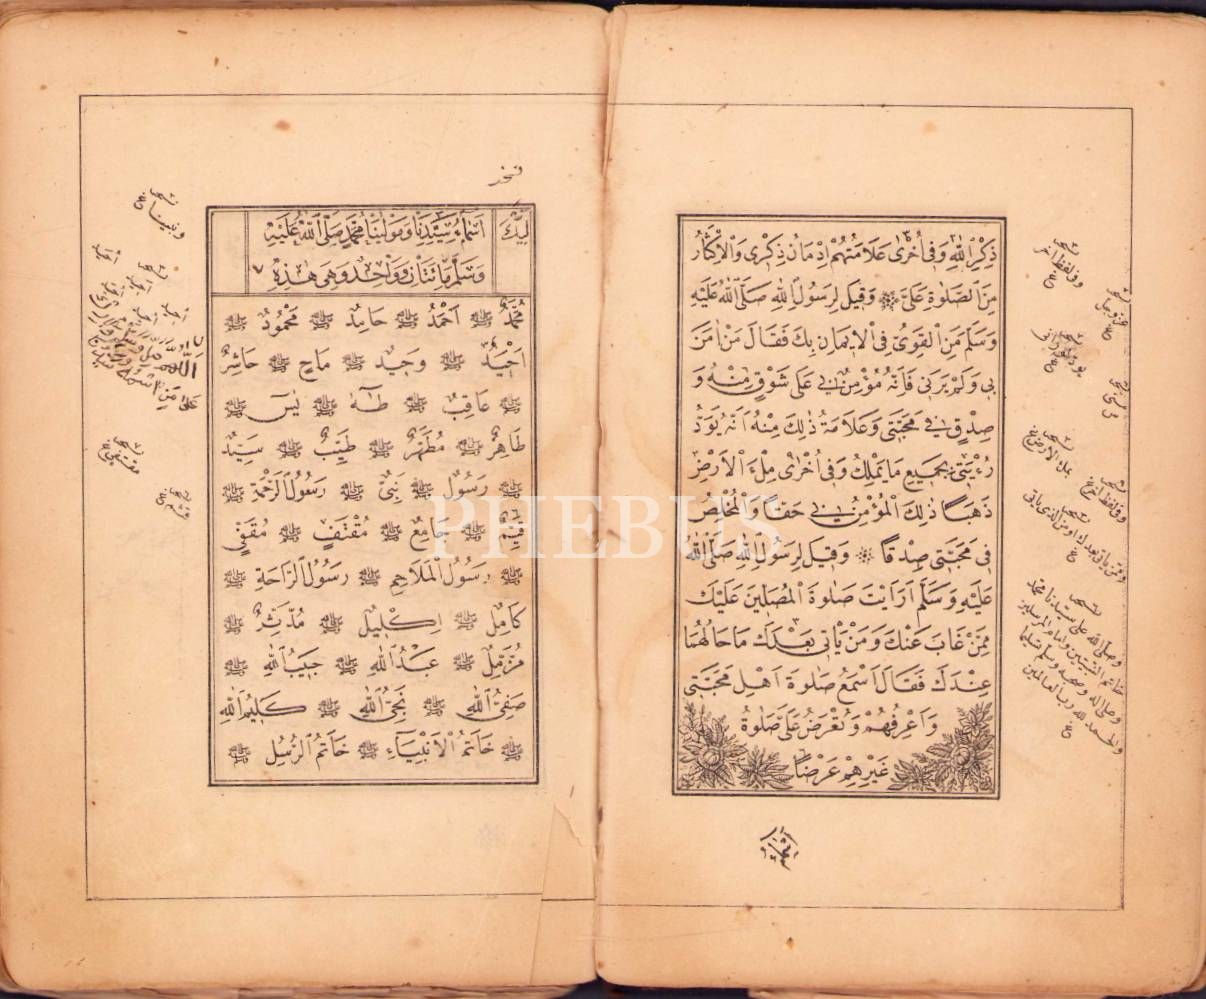 ذِكْرُ اللّٰهِ وَفِى اُخْرٰى عَلَامَتُهُمْ اِدْمَانُ ذِكْرِى وَالْاِكْثَارُ
مِنَ الصَّلٰوةِ عَلَىَّ وَقِيلَ لِرَسُولِ اللّٰهِ صَلَّى اللّٰهُ عَلَيْهِ
وَسَلَّمَ مَنِ الْقَوِىُّ فِى الْاِيْمَانِ بِكَ فَقَالَ مَنْ اٰمَنَ
بِى وَلَمْ يَرَنِى فَاِنَّهُ مُؤْمِنٌ بِى عَلٰى شَوْقٍ مِنْهُ وَ
صِدْقٍ فِى مَحَبَّتِى وَعَلَامَةُ ذٰلِكَ مِنْهُ اَنَّهُ يَوَدُّ
رُؤْيَتِى بِجَمِيعِ مَا يَمْلِكُ وَفِى اُخْرٰى مِلْءَ الْاَرْضِ
ذَهَبًا ذٰلِكَ الْمُؤْمِنُ بِى حَقًّا وَالْمُخْلِصُ
فِى مَحَبَّتِى صِدْقًا وَقِيلَ لِرَسُولِ اللّٰهِ صَلَّى اللّٰهُ
عَلَيْهِ وَسَلَّمَ اَرَاَيْتَ صَلٰوةَ الْمُصَلِّينَ عَلَيْكَ
مِمَّنْ غَابَ عَنْكَ وَمَنْ يَاْتِى بَعْدَكَ مَا حَالُهُمَا
عِنْدَكَ فَقَالَ اَسْمَعُ صَلٰوةَ اَهْلِ مَحَبَّتِى
وَاَعْرِفُهُمْ وَتُعْرَضُ عَلَىَّ صَلٰوةُ
غَيْرِهِمْ عَرْضًا
وفى لفظ اخر
عز وجل
بملء الارض
وفى لفظ اخر
ومن ياتى بعدك او من الذى ياتى
وصلى الله على سيدنا محمد
خاتم النبيين وامام المرسلين
وعلى اله وصحبه وسلم تسليما
والحمد لله رب العالمين
اَسْمَاءُ سَيِّدِنَا وَمَوْلٰينَا مُحَمَّدٍ صَلَّى اللّٰهُ عَلَيْهِ
وَسَلَّمَ مِائَتَانِ وَوَاحِدٌ وَهِىَ هٰذِهِ
مُحَمَّدٌ ﷺ اَحْمَدُ ﷺ حَامِدٌ ﷺ مَحْمُودٌ ﷺ
اَحْيَدٌ ﷺ وَحِيدٌ ﷺ مَاحٍ ﷺ حَاشِرٌ
ﷺ عَاقِبٌ ﷺ طٰهٰ ﷺ يٰسٓ ﷺ
طَاهِرٌ ﷺ مُطَهَّرٌ ﷺ طَيِّبٌ ﷺ سَيِّدٌ
ﷺ رَسُولٌ ﷺ نَبِىٌّ ﷺ رَسُولُ الرَّحْمَةِ ﷺ
قَيِّمٌ ﷺ جَامِعٌ ﷺ مُقْتَفٍ ﷺ مُقَفًّى
ﷺ رَسُولُ الْمَلَاحِمِ ﷺ رَسُولُ الرَّاحَةِ ﷺ
كَامِلٌ ﷺ اِكْلِيلٌ ﷺ مُدَّثِّرٌ ﷺ
مُزَّمِّلٌ ﷺ عَبْدُ اللّٰهِ ﷺ حَبِيبُ اللّٰهِ ﷺ
صَفِىُّ اللّٰهِ ﷺ نَجِىُّ اللّٰهِ ﷺ كَلِيمُ اللّٰهِ
ﷺ خَاتَمُ الْاَنْبِيَاءِ ﷺ خَاتَمُ الرُّسُلِ ﷺ
ونبينا
PHEBUS